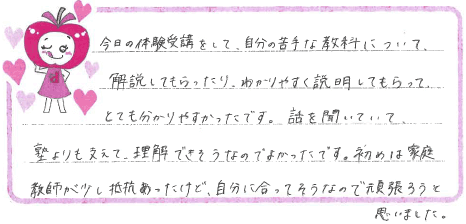 今日の体験受講をして、自分の苦手な教科について、
解説してもらったり、わかりやすく説明してもらって、
とても分かりやすかったです。話を聞いていて、
塾よりも支えて、理解できそうなのでよかったです。初めは家庭
教師が少し抵抗あったけど、自分に合ってそうなので頑張ろうと
思いました。